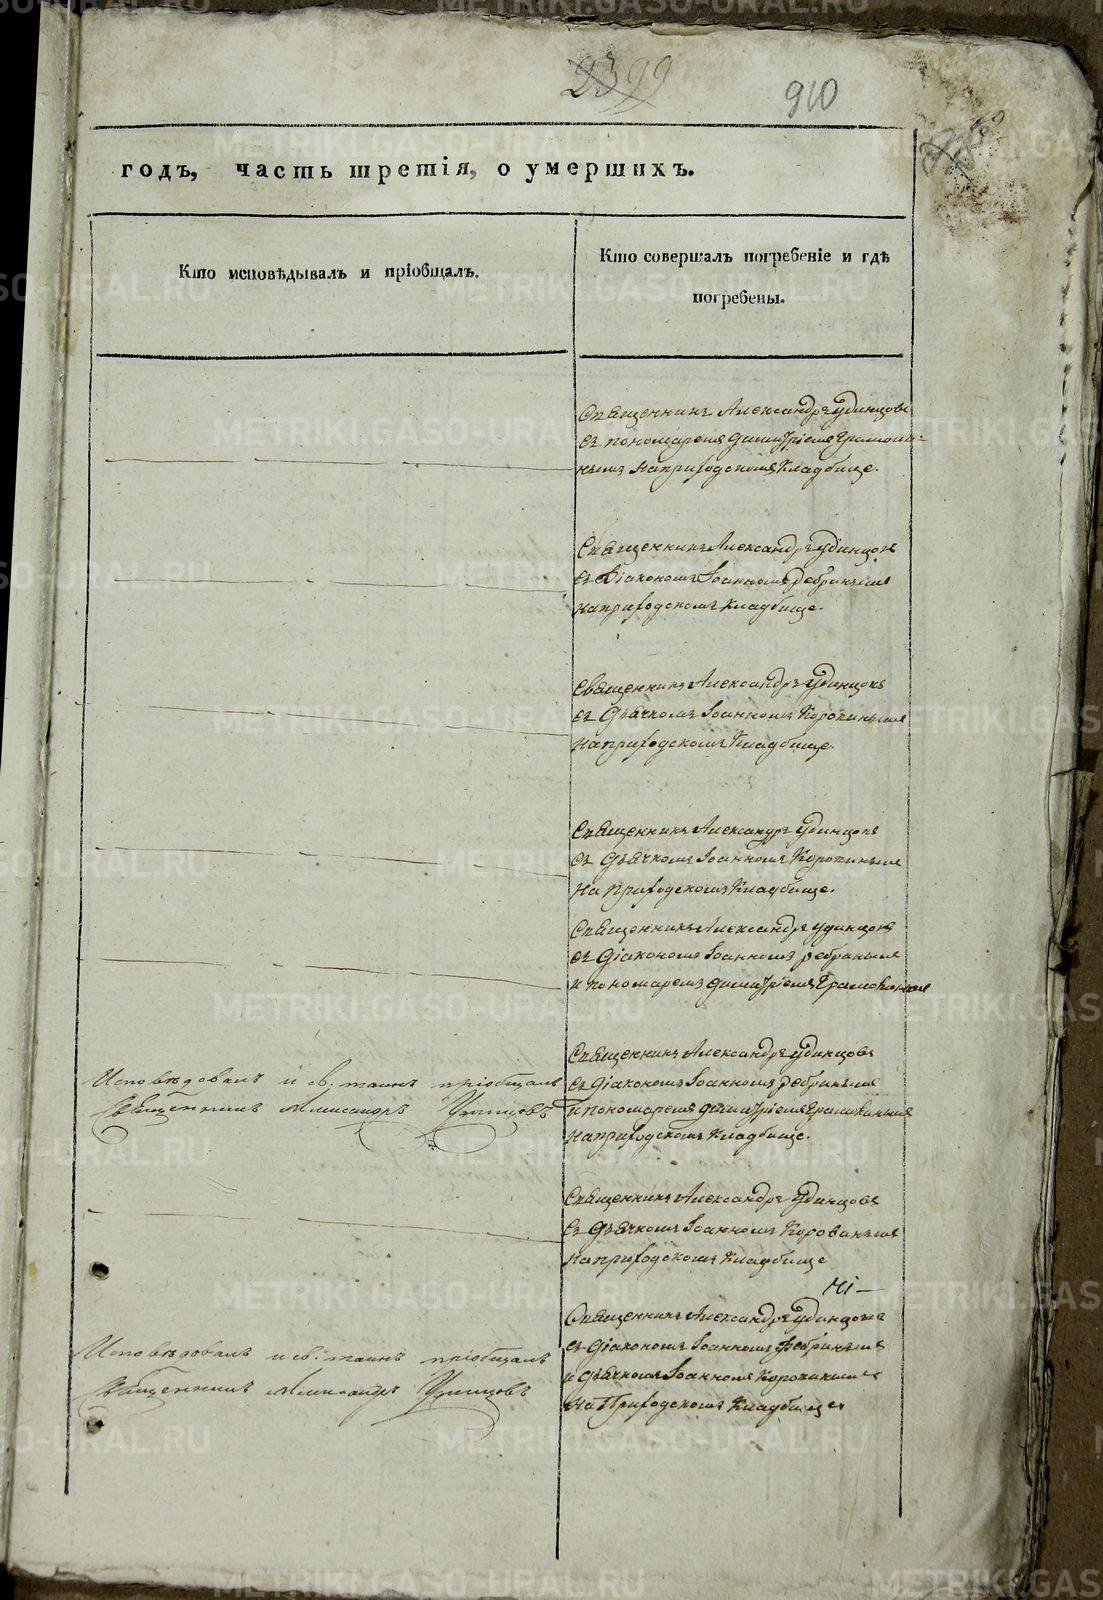 2399
910
годъ, часть третія, о умершихъ.
Кто исповѣдывалъ и пріобщалъ.
Кто совершалъ погребеніе и гдѣ
погребены.
Священникъ Александръ Удинцовъ
съ пономаремъ Димитріемъ
нымъ на приходскомъ Кладбище.
Священникъ Александръ Удинцовъ
съ Діакономъ Іоанномъ Ребринымъ
на приходскомъ Кладбище.
Священникъ Александръ Удинцовъ
съ Дьячкомъ Іоанномъ
на приходскомъ Кладбище.
Священникъ Александръ Удинцовъ
съ Дьячкомъ Іоанномъ
на Приходскомъ Кладбище.
Священникъ Александръ Удинцовъ
съ Діакономъ Іоанномъ Ребринымъ
и пономаремъ Димитріемъ
Священникъ Александръ Удинцовъ
Исповѣдовалъ и св. таинъ пріобщалъ
съ Діакономъ Іоанномъ Ребринымъ
Священникъ Александръ Удинцовъ
и пономаремъ Димитріемъ
на приходскомъ Кладбище.
Священникъ Александръ Удинцовъ
съ Дьячкомъ Іоанномъ
на приходскомъ Кладбище
Священникъ Александръ Удинцовъ
Исповѣдовалъ и св. таинъ пріобщалъ
съ Діакономъ Іоанномъ Ребринымъ
Священникъ Александръ Удинцовъ
и Дьячкомъ Іоанномъ
на Приходскомъ Кладбище
METRIKI.GASO-URAL.RU